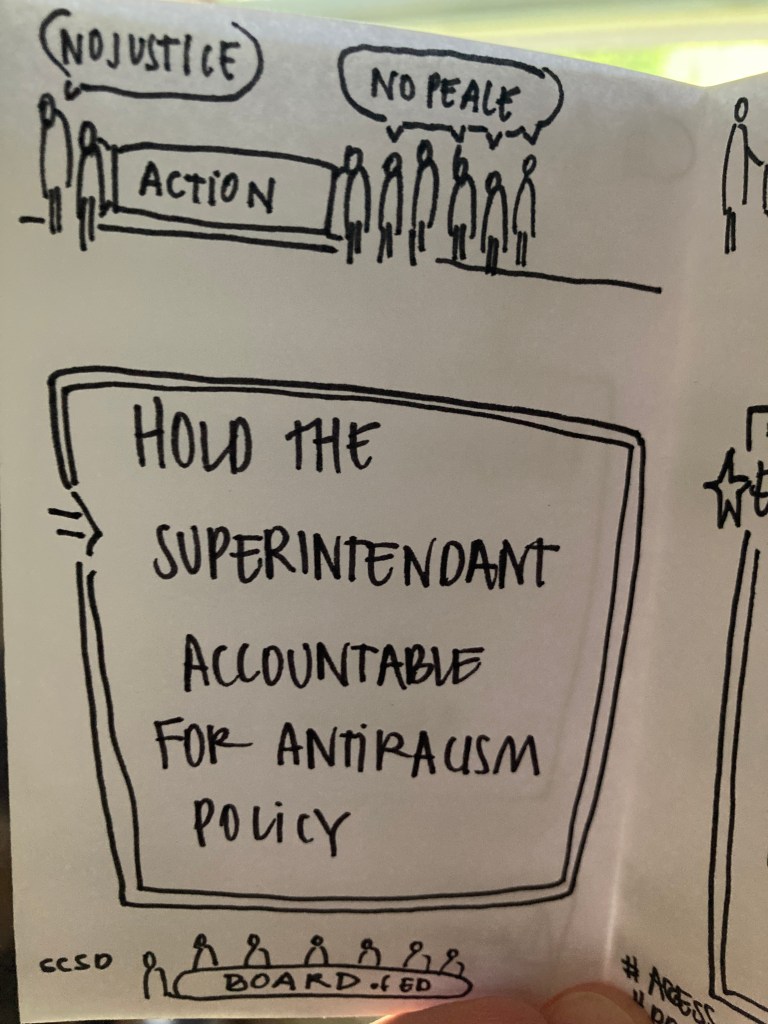 NO JUSTICE
NO PEACE
ACTION
HOLD THE
SUPERINTENDANT
ACCOUNTABLE
FOR ANTIRACISM
POLICY
SCSD
BOARD.of ED